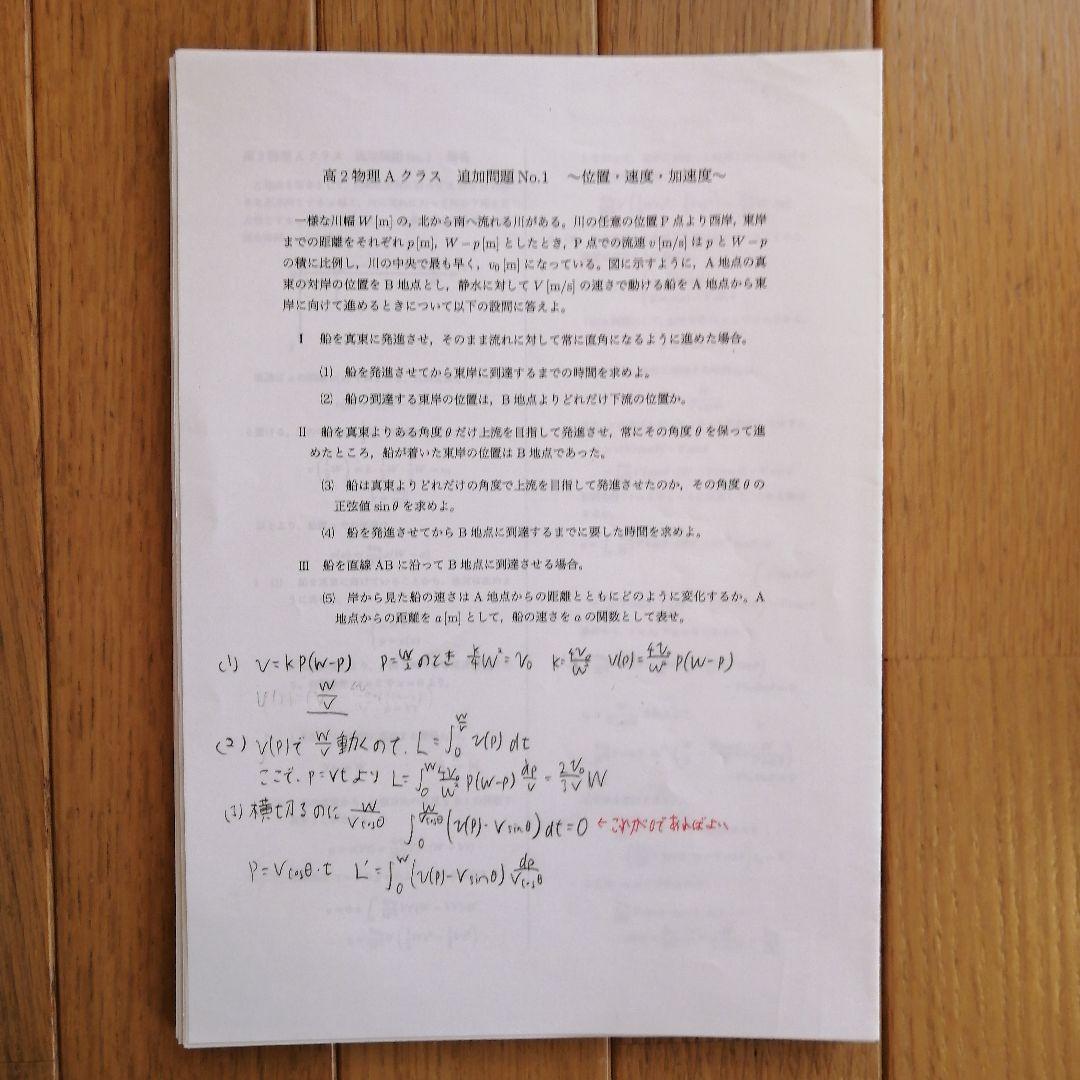 高2物理Aクラス 追加問題No.1 ～位置・速度・加速度～
一様な川幅W[m]の，北から南へ流れる川がある。川の任意の位置P点より西岸，東岸
までの距離をそれぞれp[m]，W－p[m]としたとき，P点での流速v[m/s]はpとW－p
の積に比例し，川の中央で最も早く，v₀[m]になっている。図に示すように，A地点の真
東の対岸の位置をB地点とし，静水に対してV[m/s]の速さで動ける船をA地点から東
岸に向けて進めるときについて以下の設問に答えよ。
I 船を真東に発進させ，そのまま流れに対して常に直角になるように進めた場合。
(1) 船を発進させてから東岸に到達するまでの時間を求めよ。
(2) 船の到達する東岸の位置は，B地点よりどれだけ下流の位置か。
II 船を真東よりある角度θだけ上流を目指して発進させ，常にその角度θを保って進
めたところ，船が着いた東岸の位置はB地点であった。
(3) 船は真東よりどれだけの角度で上流を目指して発進させたのか，その角度θの
正弦値sinθを求めよ。
(4) 船を発進させてからB地点に到達するまでに要した時間を求めよ。
III 船を直線ABに沿ってB地点に到達させる場合。
(5) 岸から見た船の速さはA地点からの距離とともにどのように変化するか。A
地点からの距離をa[m]として，船の速さをaの関数として表せ。
(1) v=kp(W-p) p=W/2のとき k/4W²=v₀ k=4v₀/W² v(p)=4v₀/W² p(W-p)
W/V
(2) v(p)で W/V 動くので、L=∫₀^(W/V) v(p) dt
ここで、p=Vtより L=∫₀^W 4v₀/W² p(W-p) dp/V = 2v₀/3V W
(3) 横切るのに W/Vcosθ ∫₀^(W/Vcosθ) (v(p)-Vsinθ) dt=0 ←これが0であればよい
p=Vcosθ・t L'=∫₀^W (v(p)-Vsinθ) dp/Vcosθ